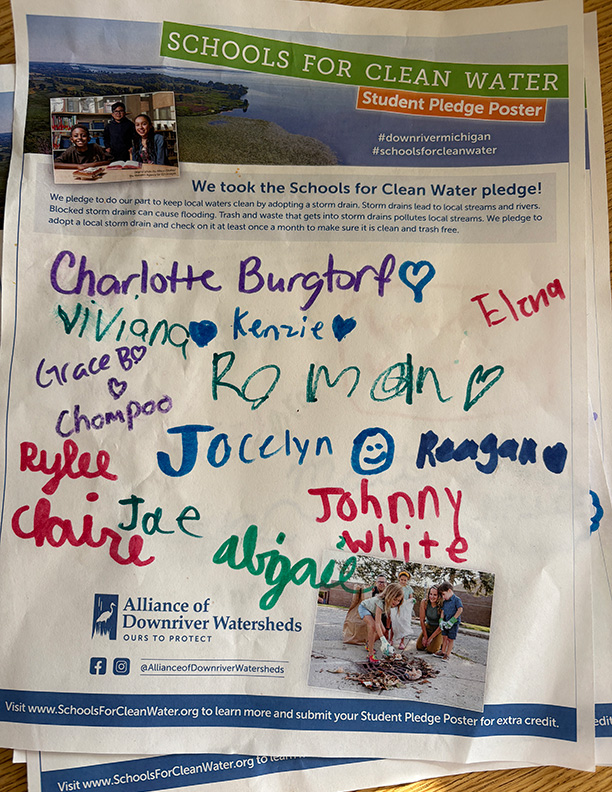 SCHOOLS FOR CLEAN WATER
Student Pledge Poster
#downrivermichigan
#schoolsforcleanwater
We took the Schools for Clean Water pledge!
We pledge to do our part to keep local waters clean by adopting a storm drain. Storm drains lead to local streams and rivers.
Blocked storm drains can cause flooding. Trash and waste that gets into storm drains pollutes local streams. We pledge to
adopt a local storm drain and check on it at least once a month to make sure it is clean and trash free.
Charlotte Burgtorf
Elena
Viviana Kenzie
Grace B
Roman
Chompoo
Jocelyn Reagan
Rylee
Johnny
White
Claire Jae
abigail
Alliance of
Downriver Watersheds
OURS TO PROTECT
@AllianceofDownriverWatersheds
Visit www.SchoolsForCleanWater.org to learn more and submit your Student Pledge Poster for extra credit.
edit.
Visit www.SchoolsForCleanWater.org to lear